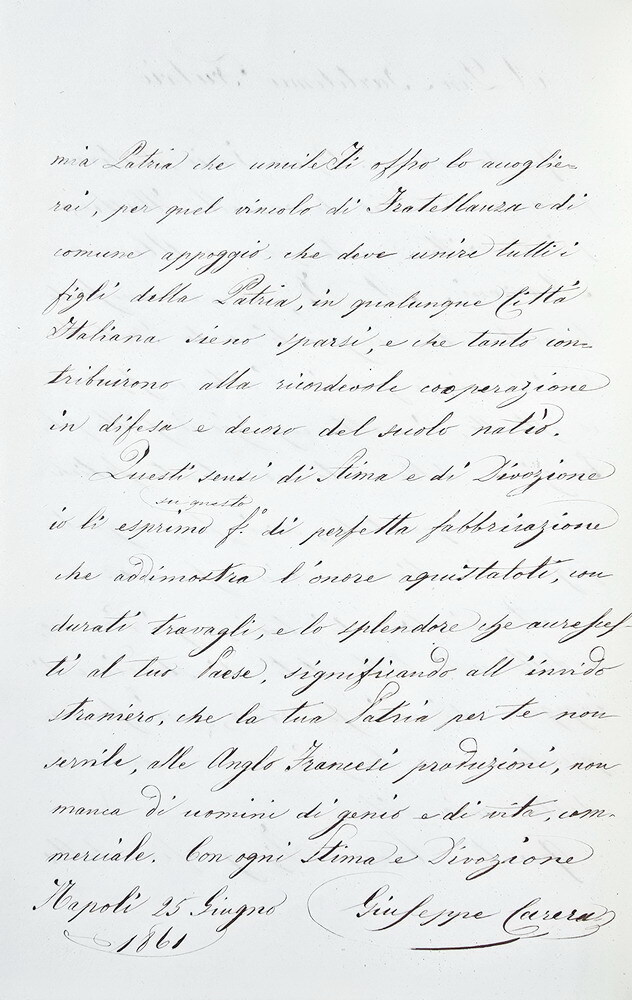 mia Patria che umile Ti offro lo accoglie=
rai, per quel vincolo di Fratellanza e di
comune appoggio, che deve unire tutti i
figli della Patria, in qualunque Città
Italiana sieno sparsi, e che tanto con=
tribuirono alla ricordevole cooperazione
in difesa e decoro del suolo natìo.
Questi sensi di Stima e di Divozione
su questo
io li esprimo f.º di perfetta fabbricazione
che addimostra l'onore aquistatoti, con
durati travagli, e lo splendore che
ti al tuo Paese, significando all'invido
straniero, che la tua Patria per te non
servile, alle Anglo Francesi produzioni, non
manca di uomini di genio e di vita, com-
merciale. Con ogni Stima e Divozione
Napoli 25 Giugno
1861
Giuseppe Carera